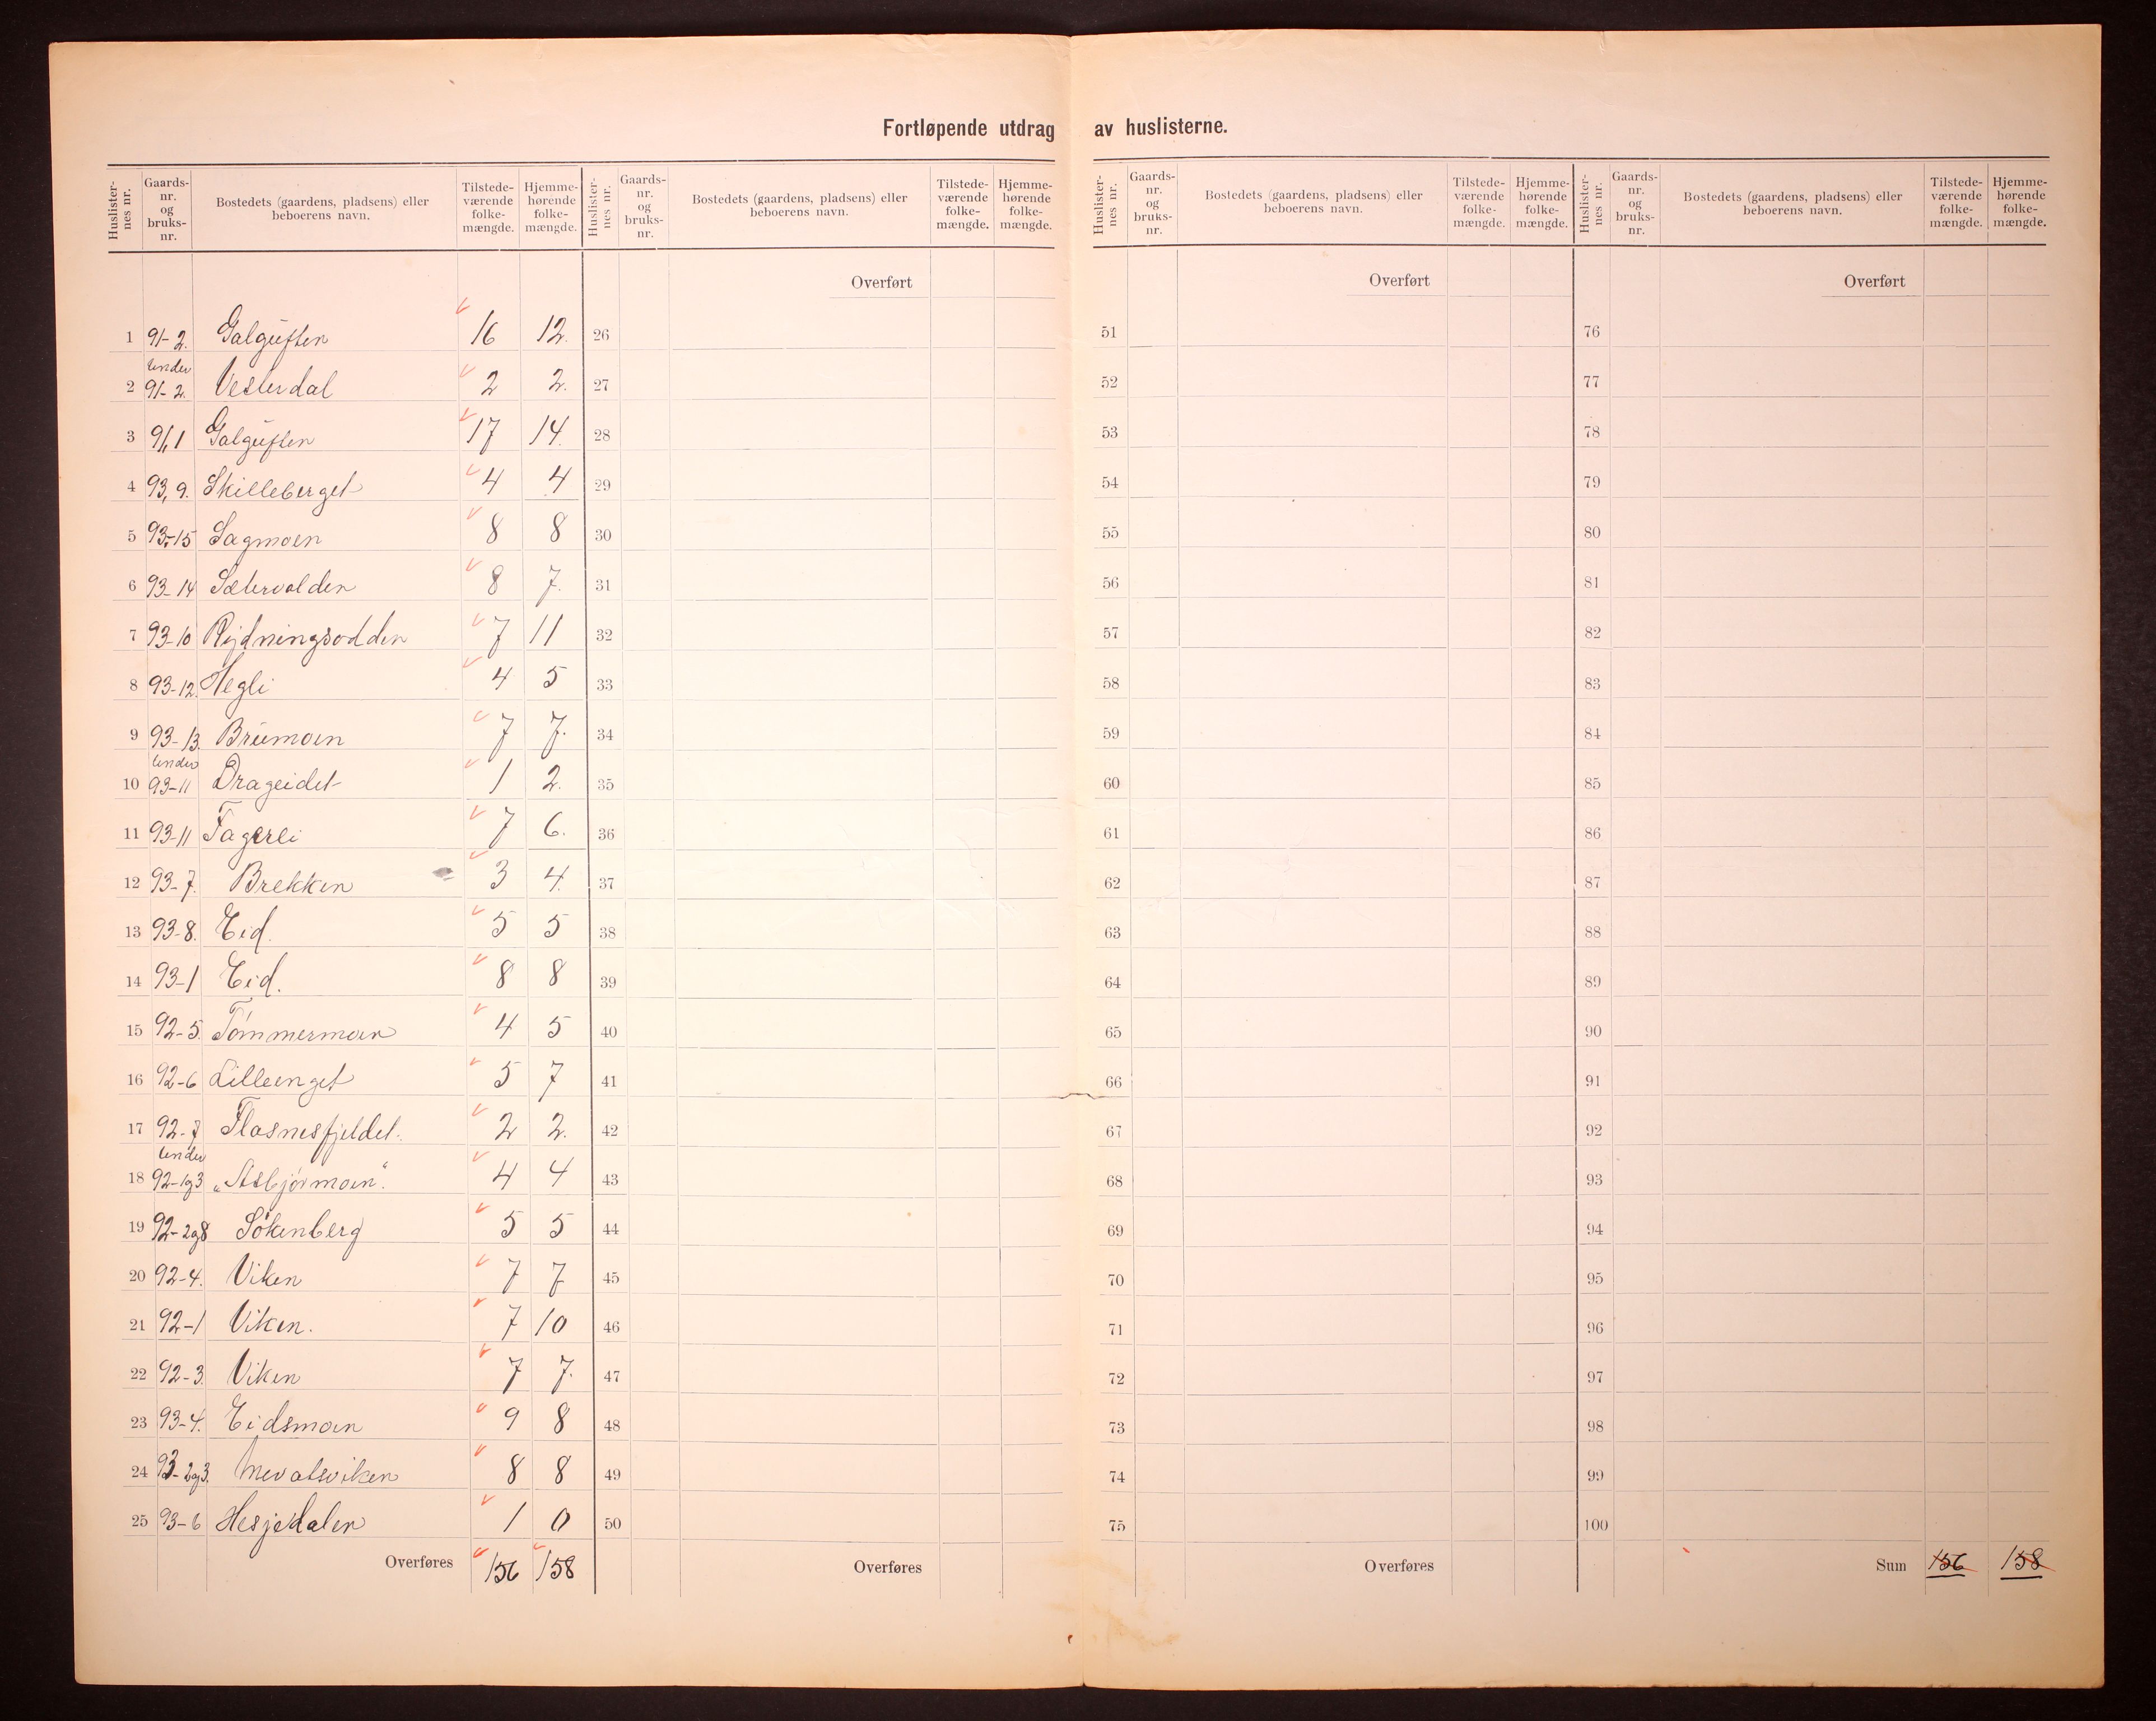 Fortløpende utdrag av huslisterne.
Huslister-nes nr. Gaards-nr. og bruks-nr. Bostedets (gaardens, pladsens) eller beboerens navn. Tilstede-værende folke-mængde. Hjemme-hørende folke-mængde. Huslister-nes nr. Gaards-nr. og bruks-nr. Bostedets (gaardens, pladsens) eller beboerens navn. Tilstede-værende folke-mængde. Hjemme-hørende folke-mængde. Huslister-nes nr. Gaards-nr. og bruks-nr. Bostedets (gaardens, pladsens) eller beboerens navn. Tilstede-værende folke-mængde. Hjemme-hørende folke-mængde. Huslister-nes nr. Gaards-nr. og bruks-nr. Bostedets (gaardens, pladsens) eller beboerens navn. Tilstede-værende folke-mængde. Hjemme-hørende folke-mængde.
Overført Overført Overført
1 91-2. Galguften 16 12. 26 51 76
under
2 91-2. Vesterdal 2 2. 27 52 77
3 91,1 Galguften 17 14. 28 53 78
4 93,9. Skilleberget 4 4 29 54 79
5 93-15 Sagmoen 8 8 30 55 80
6 93-14 Sætervolden 8 7. 31 56 81
7 93-10 Rydningsodden 7 11 32 57 82
8 93-12. Hegli 4 5 33 58 83
9 93-13. Brumoen 7 7. 34 59 84
under
10 93-11 Drageidet 1 2. 35 60 85
11 93-11 Fagerli 7 6. 36 61 86
12 93-7. Brekken 3 4. 37 62 87
13 93-8. Eid. 5 5 38 63 88
14 93-1 Eid. 8 8 39 64 89
15 92-5. Tömmermoen 4 5 40 65 90
16 92-6 Lilleenget 5 7 41 66 91
17 92-7 Flasnesfjeldet. 2 2. 42 67 92
under
18 92-1og3 „Asbjörmoen". 4 4 43 68 93
19 92-2og8 Sökenberg 5 5 44 69 94
20 92-4. Viken 7 7 45 70 95
21 92-1 Viken. 7 10 46 71 96
22 92-3. Viken 7 7. 47 72 97
23 93-4. Eidsmoen 9 8 48 73 98
24 93-2og3. Mevatsviken 8 8 49 74 99
25 93-6 Hesjedalen 1 0 50 75 100
Overføres 156 158 Overføres Overføres Sum 156 158